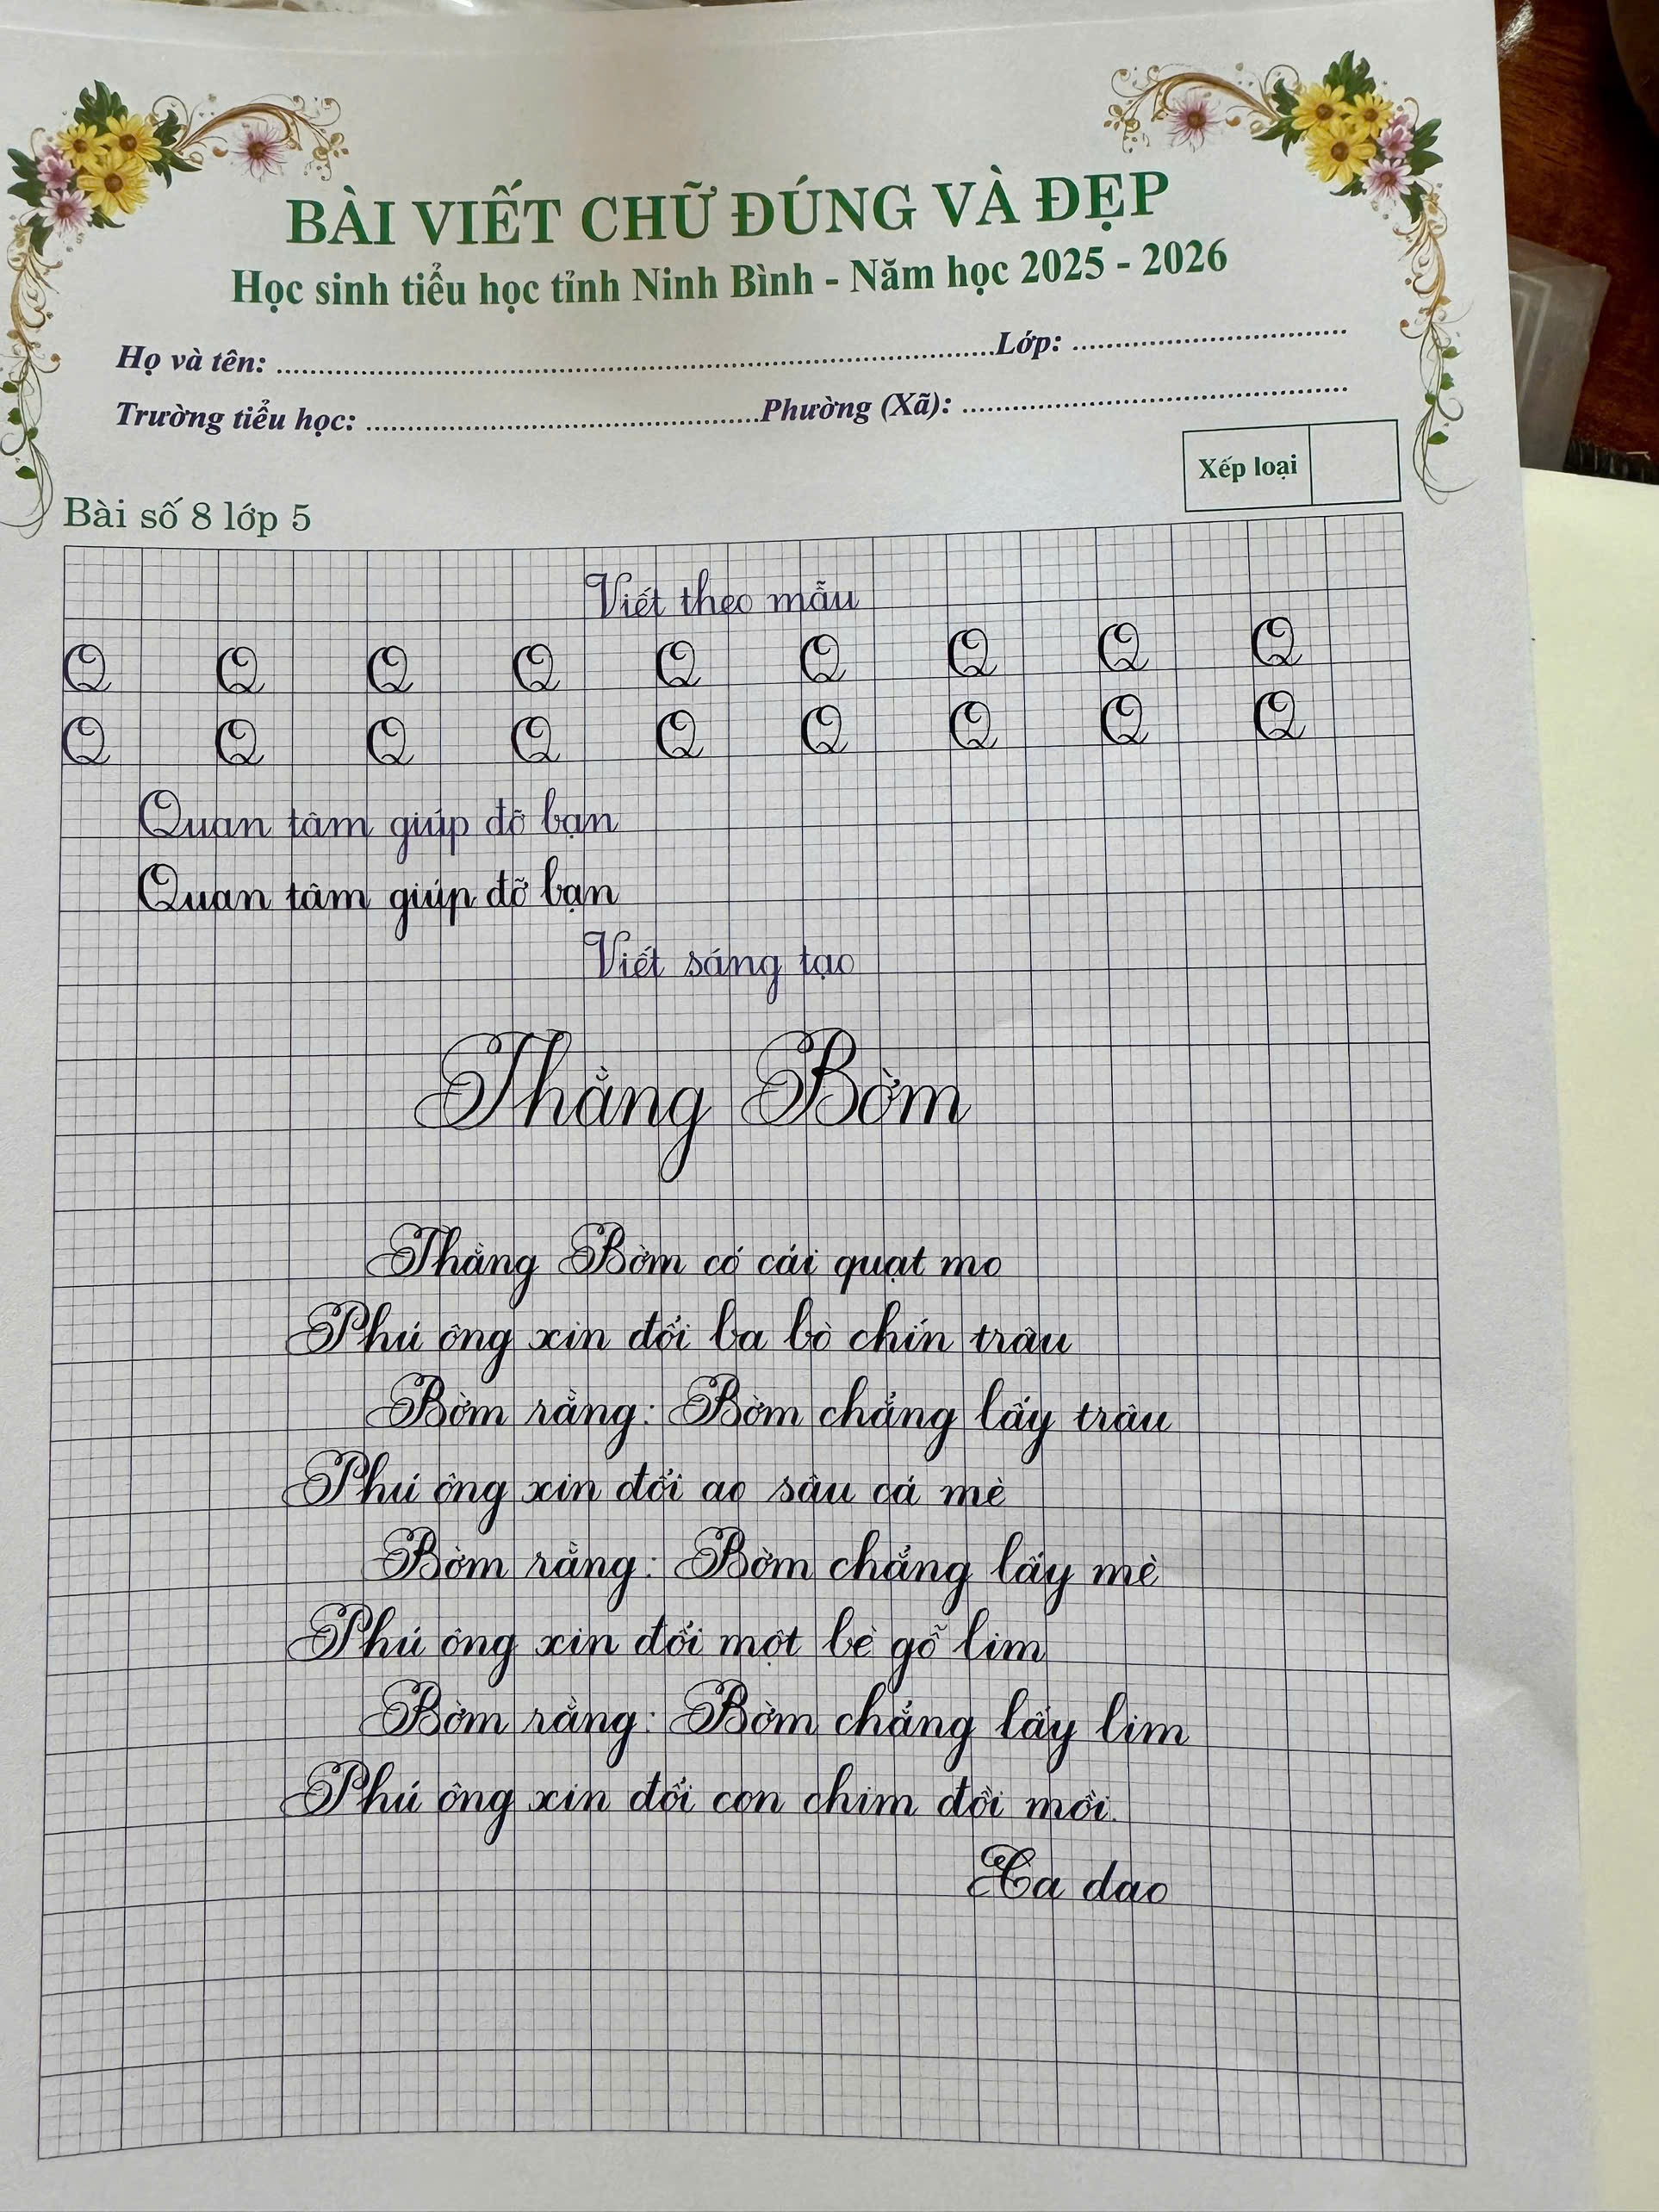 BÀI VIẾT CHỮ ĐÚNG VÀ ĐẸP
Học sinh tiểu học tỉnh Ninh Bình - Năm học 2025 - 2026
Họ và tên: ........................ Lớp: ........................
Trường tiểu học: ........................ Phường (Xã): ........................
Xếp loại
Bài số 8 lớp 5
Viết theo mẫu
Q Q Q Q Q Q Q Q Q
Q Q Q Q Q Q Q Q Q
Quan tâm giúp đỡ bạn
Quan tâm giúp đỡ bạn
Viết sáng tạo
Thằng Bờm
Thằng Bờm có cái quạt mo
Phú ông xin đổi ba bò chín trâu
Bờm rằng: Bờm chẳng lấy trâu
Phú ông xin đổi ao sâu cá mè
Bờm rằng: Bờm chẳng lấy mè
Phú ông xin đổi một bè gỗ lim
Bờm rằng: Bờm chẳng lấy lim
Phú ông xin đổi con chim đồi mồi.
Ca dao